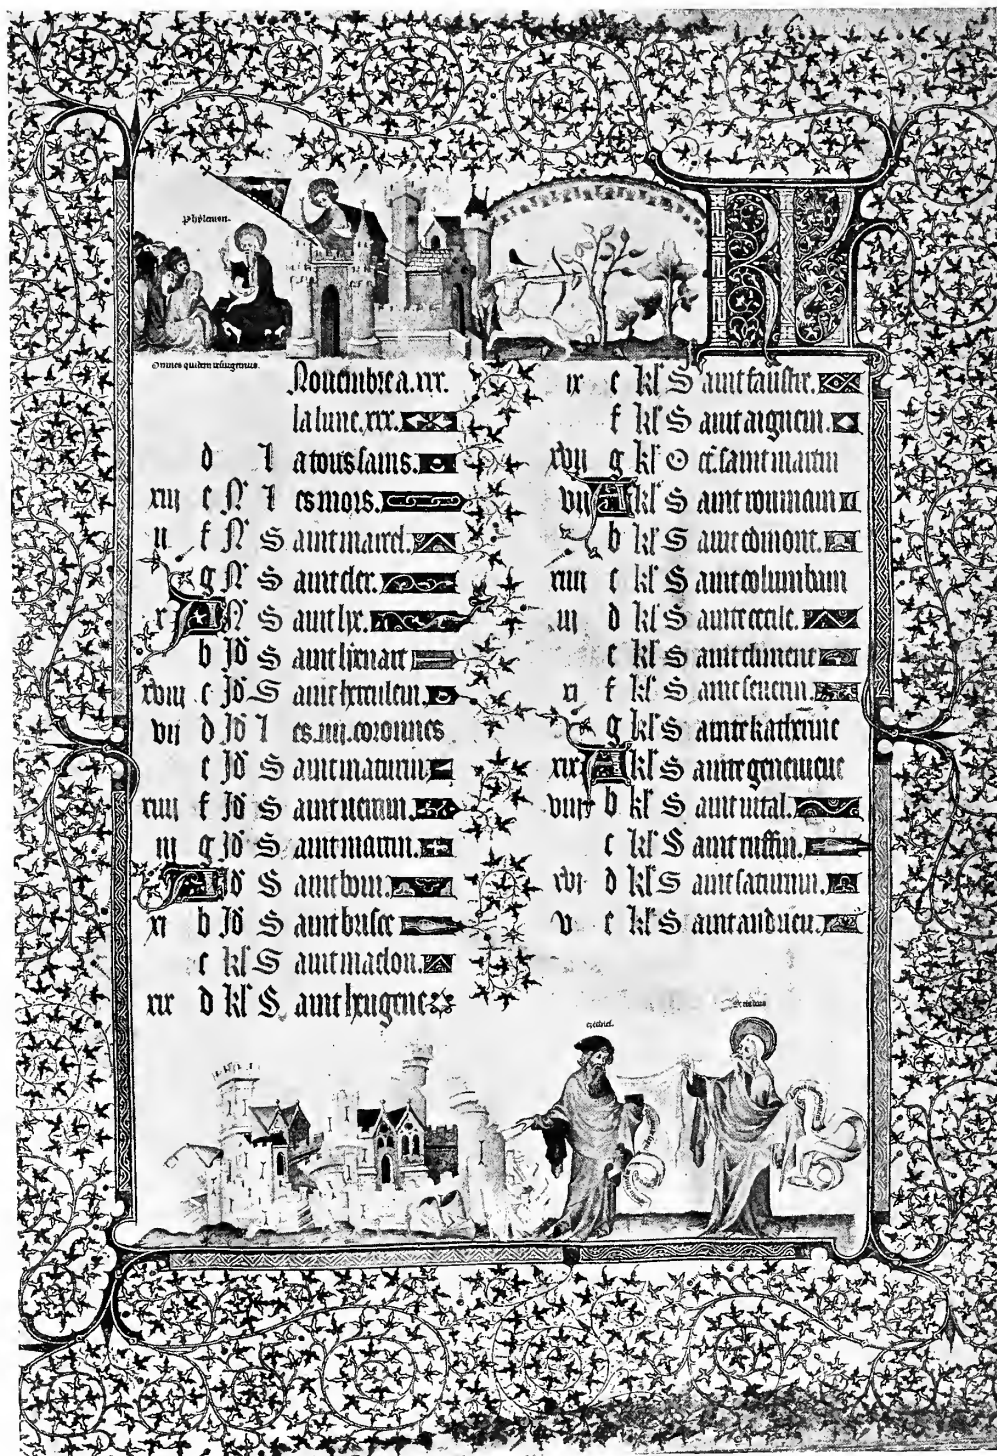 phylemon.
Omnes quidem resurgemus.
KL
Novembre a .xxx.
la lune .xxx.
d I a tous sains.
xiii e N' L es mors.
ii f N' S aint marcel.
g N' S aint cler.
x A N' S aint lye.
b Id' S aint lyenart
xviii c Id' S aint herculein
vii d Id' L es .iiii. coronnes
e Id' S aint maturin.
xiiii f Id' S aint
iii g Id' S aint martin.
A Id' S aint
xi b Id' S aint brisce
c kl' S aint maclou.
xix d kl' S aint heugene
ix e kl' S aint faustre.
f kl' S aint aignein.
xvii g kl' O ct'. saint martin
vii A kl' S aint roumain
b kl' S aint edmont.
xiiii c kl' S aint columbain
iii d kl' S ainte cecile.
e kl' S aint climent
xi f kl' S aint severin.
g kl' S ainte katherine
xix A kl' S ainte genevieve
viii b kl' S aint vital.
c kl' S aint ruffin.
xvi d kl' S aint saturnin.
v e kl' S aint andrieu.
ezechiel.